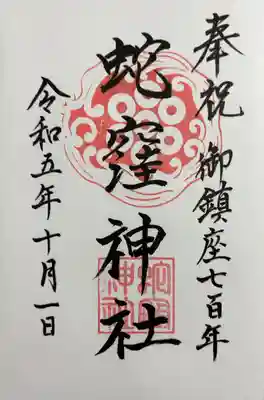 奉祝御鎮座七百年
蛇窪神社
令和五年十月一日
蛇窪
神社